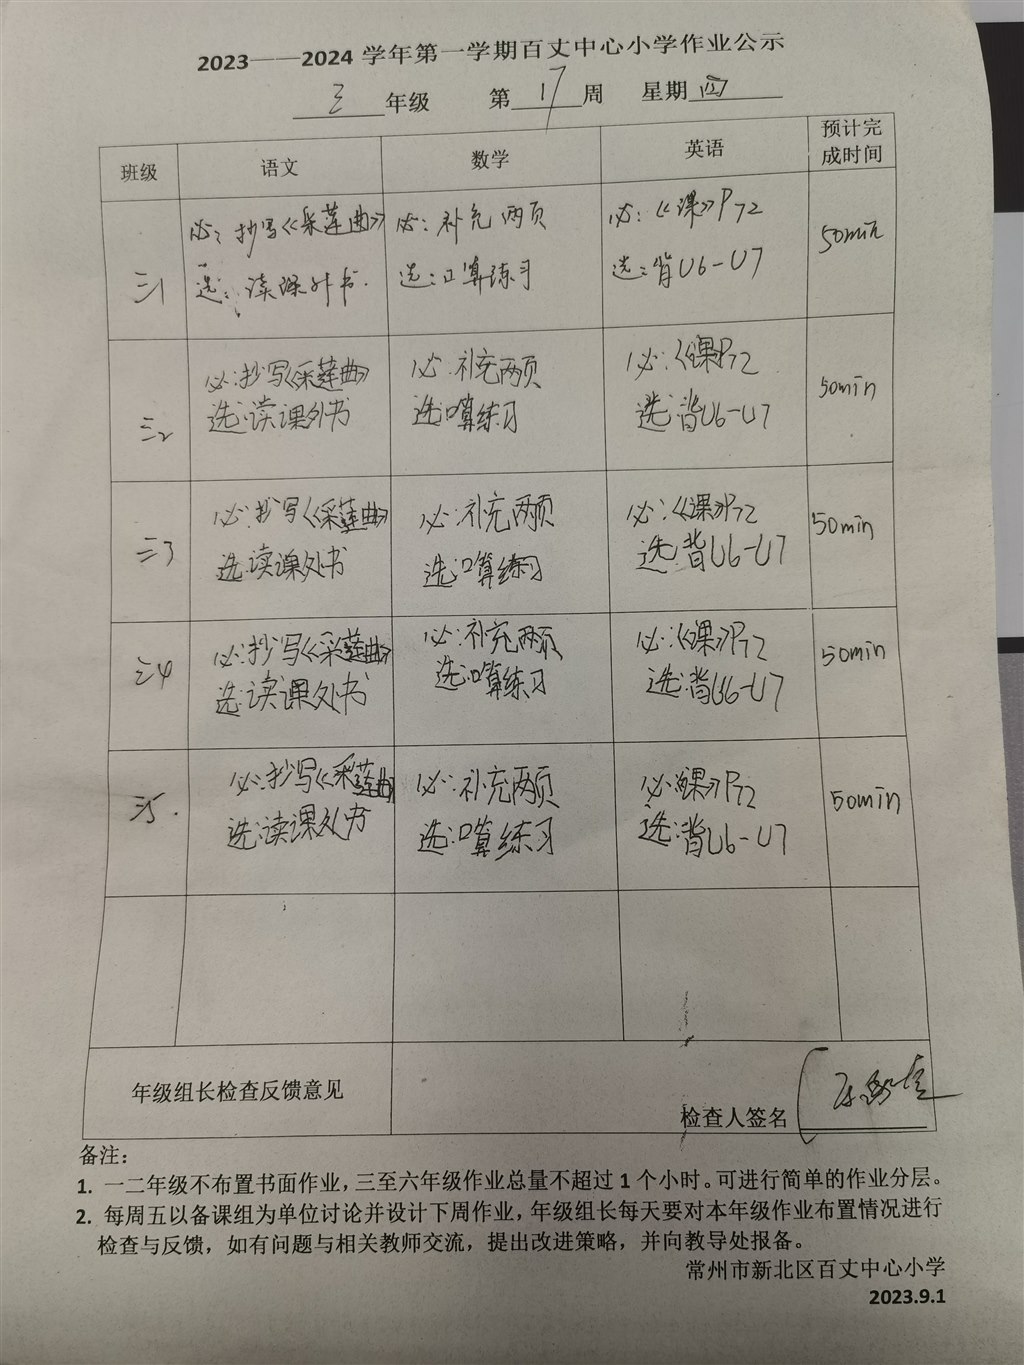 2023——2024 学年第一学期百丈中心小学作业公示
三 年级 第 17 周 星期 四
班级 语文 数学 英语 预计完成时间
三1
必：抄写《采莲曲》
选：读课外书.
必：补充两页
选：口算练习
必：《课》P72
选：背U6-U7
50min
三2
必：抄写《采莲曲》
选：读课外书
必：补充两页
选：口算练习
必：《课》P72
选：背U6-U7
50min
三3
必：抄写《采莲曲》
选：读课外书
必：补充两页
选：口算练习
必：《课》P72
选：背U6-U7
50min
三4
必：抄写《采莲曲》
选：读课外书
必：补充两页
选：口算练习
必：《课》P72
选：背U6-U7
50min
三5.
必：抄写《采莲曲》
选：读课外书
必：补充两页
选：口算练习
必：《课》P72
选：背U6-U7
50min
年级组长检查反馈意见
检查人签名
备注：
1. 一二年级不布置书面作业，三至六年级作业总量不超过 1 个小时。可进行简单的作业分层。
2. 每周五以备课组为单位讨论并设计下周作业，年级组长每天要对本年级作业布置情况进行
检查与反馈，如有问题与相关教师交流，提出改进策略，并向教导处报备。
常州市新北区百丈中心小学
2023.9.1